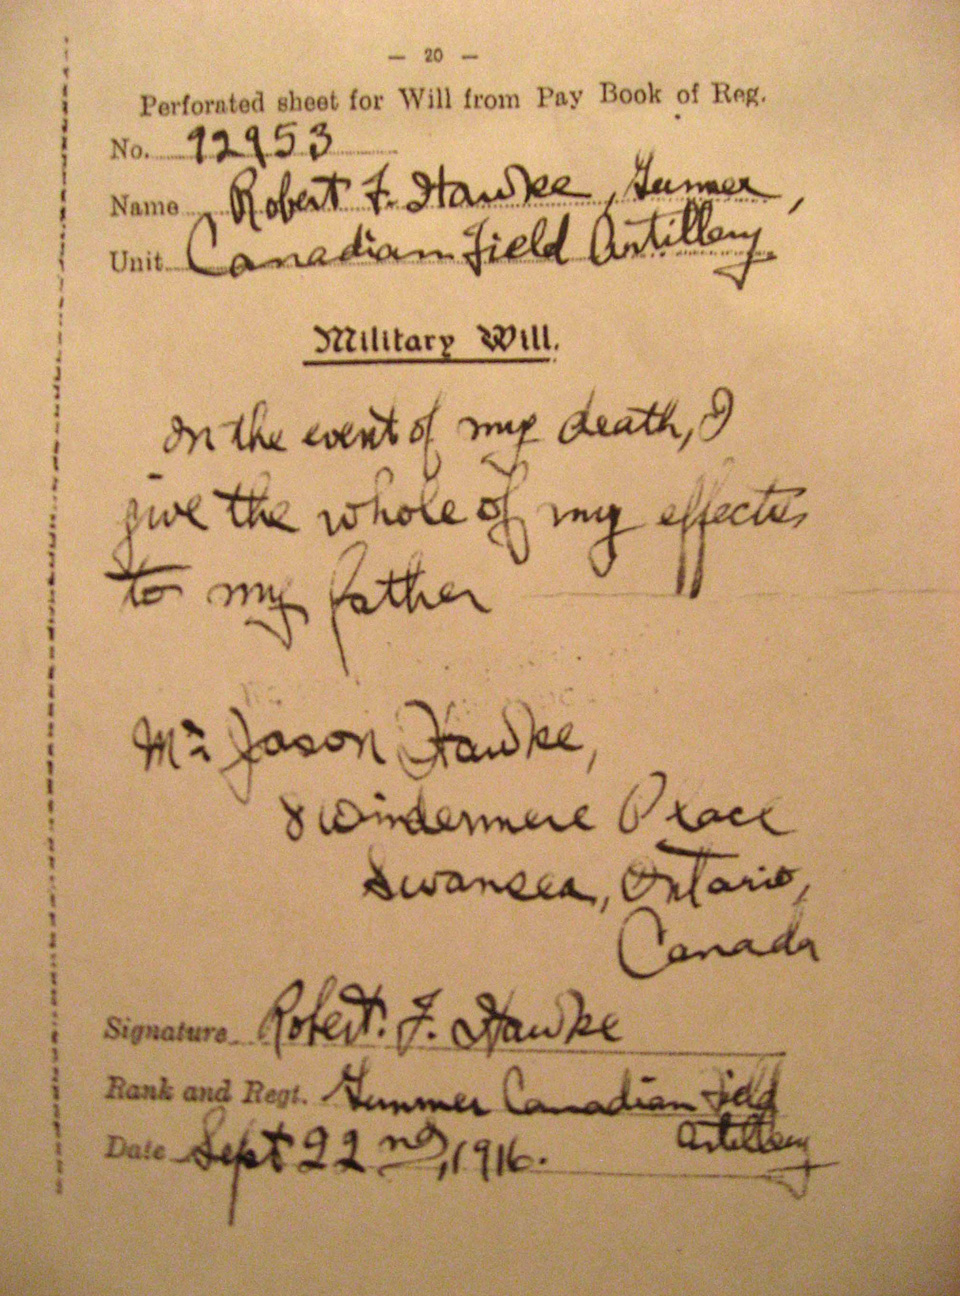 — 20 —
Perforated sheet for Will from Pay Book of Reg.
No. 92953
Name Robert F. Hawke, Gunner,
Unit Canadian Field Artillery
Military Will.
In the event of my death, I
give the whole of my effects
to my father
Mr Jason Hawke,
8 Windermere Place
Swansea, Ontario,
Canada
Signature Robert. F. Hawke
Rank and Regt. Gunner Canadian Field
Artillery
Date Sept 22nd, 1916.